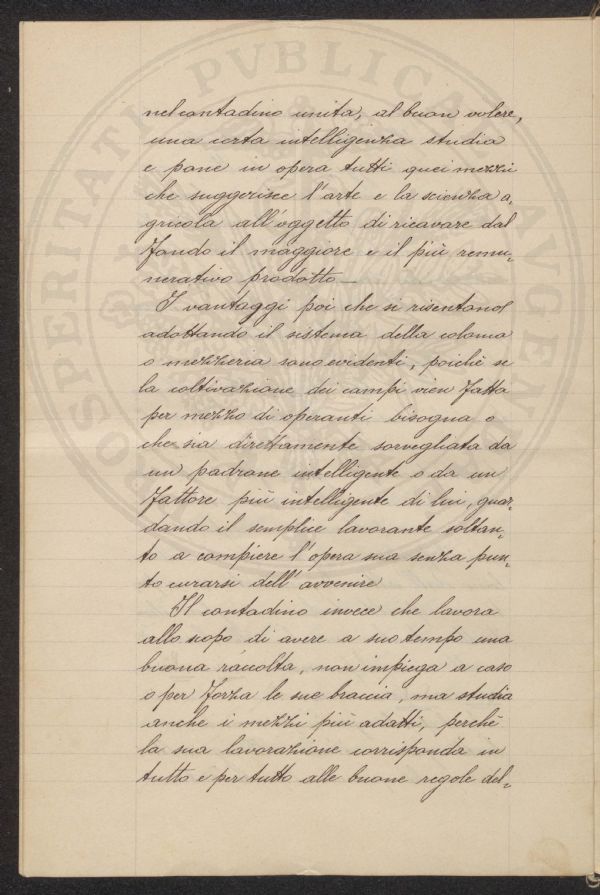 nel contadino unita, al buon volere,
una certa intelligenza studia
e pone in opera tutti quei mezzi
che suggerisce l'arte e la scienza a„
gricola all'oggetto di ricavare dal
fondo il maggiore e il più remu„
nerativo prodotto_
I vantaggi poi che si risentono
adottando il sistema della colonia
o mezzeria sono evidenti, poichè se
la coltivazione dei campi vien fatta
per mezzo di operanti bisogna o
che sia direttamente sorvegliata da
un padrone intelligente o da un
fattore più intelligente di lui, guar„
dando il semplice lavorante soltan„
to a compiere l'opera sua senza pun„
to curarsi dell'avvenire
Il contadino invece che lavora
allo scopo di avere a suo tempo una
buona raccolta, non impiega a caso
o per forza le sue braccia, ma studia
anche i mezzi più adatti, perchè
la sua lavorazione corrisponda in
tutto e per tutto alle buone regole del„
OSPERITATI PVBLICAE AVGEN